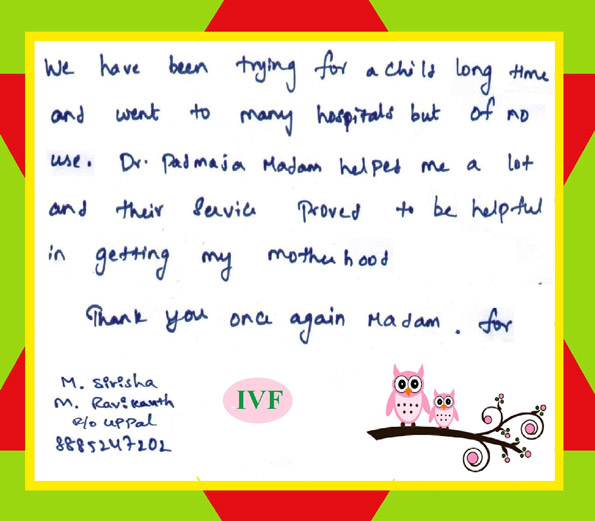 We have been trying for a child long time
and went to many hospitals but of no
use. Dr. Padmaja Madam helped me a lot
and their Service Proved to be helpful
in getting my motherhood
Thank you once again Madam. for
M. Sirisha
M. Ravikanth
R/o uppal
8885247202
IVF